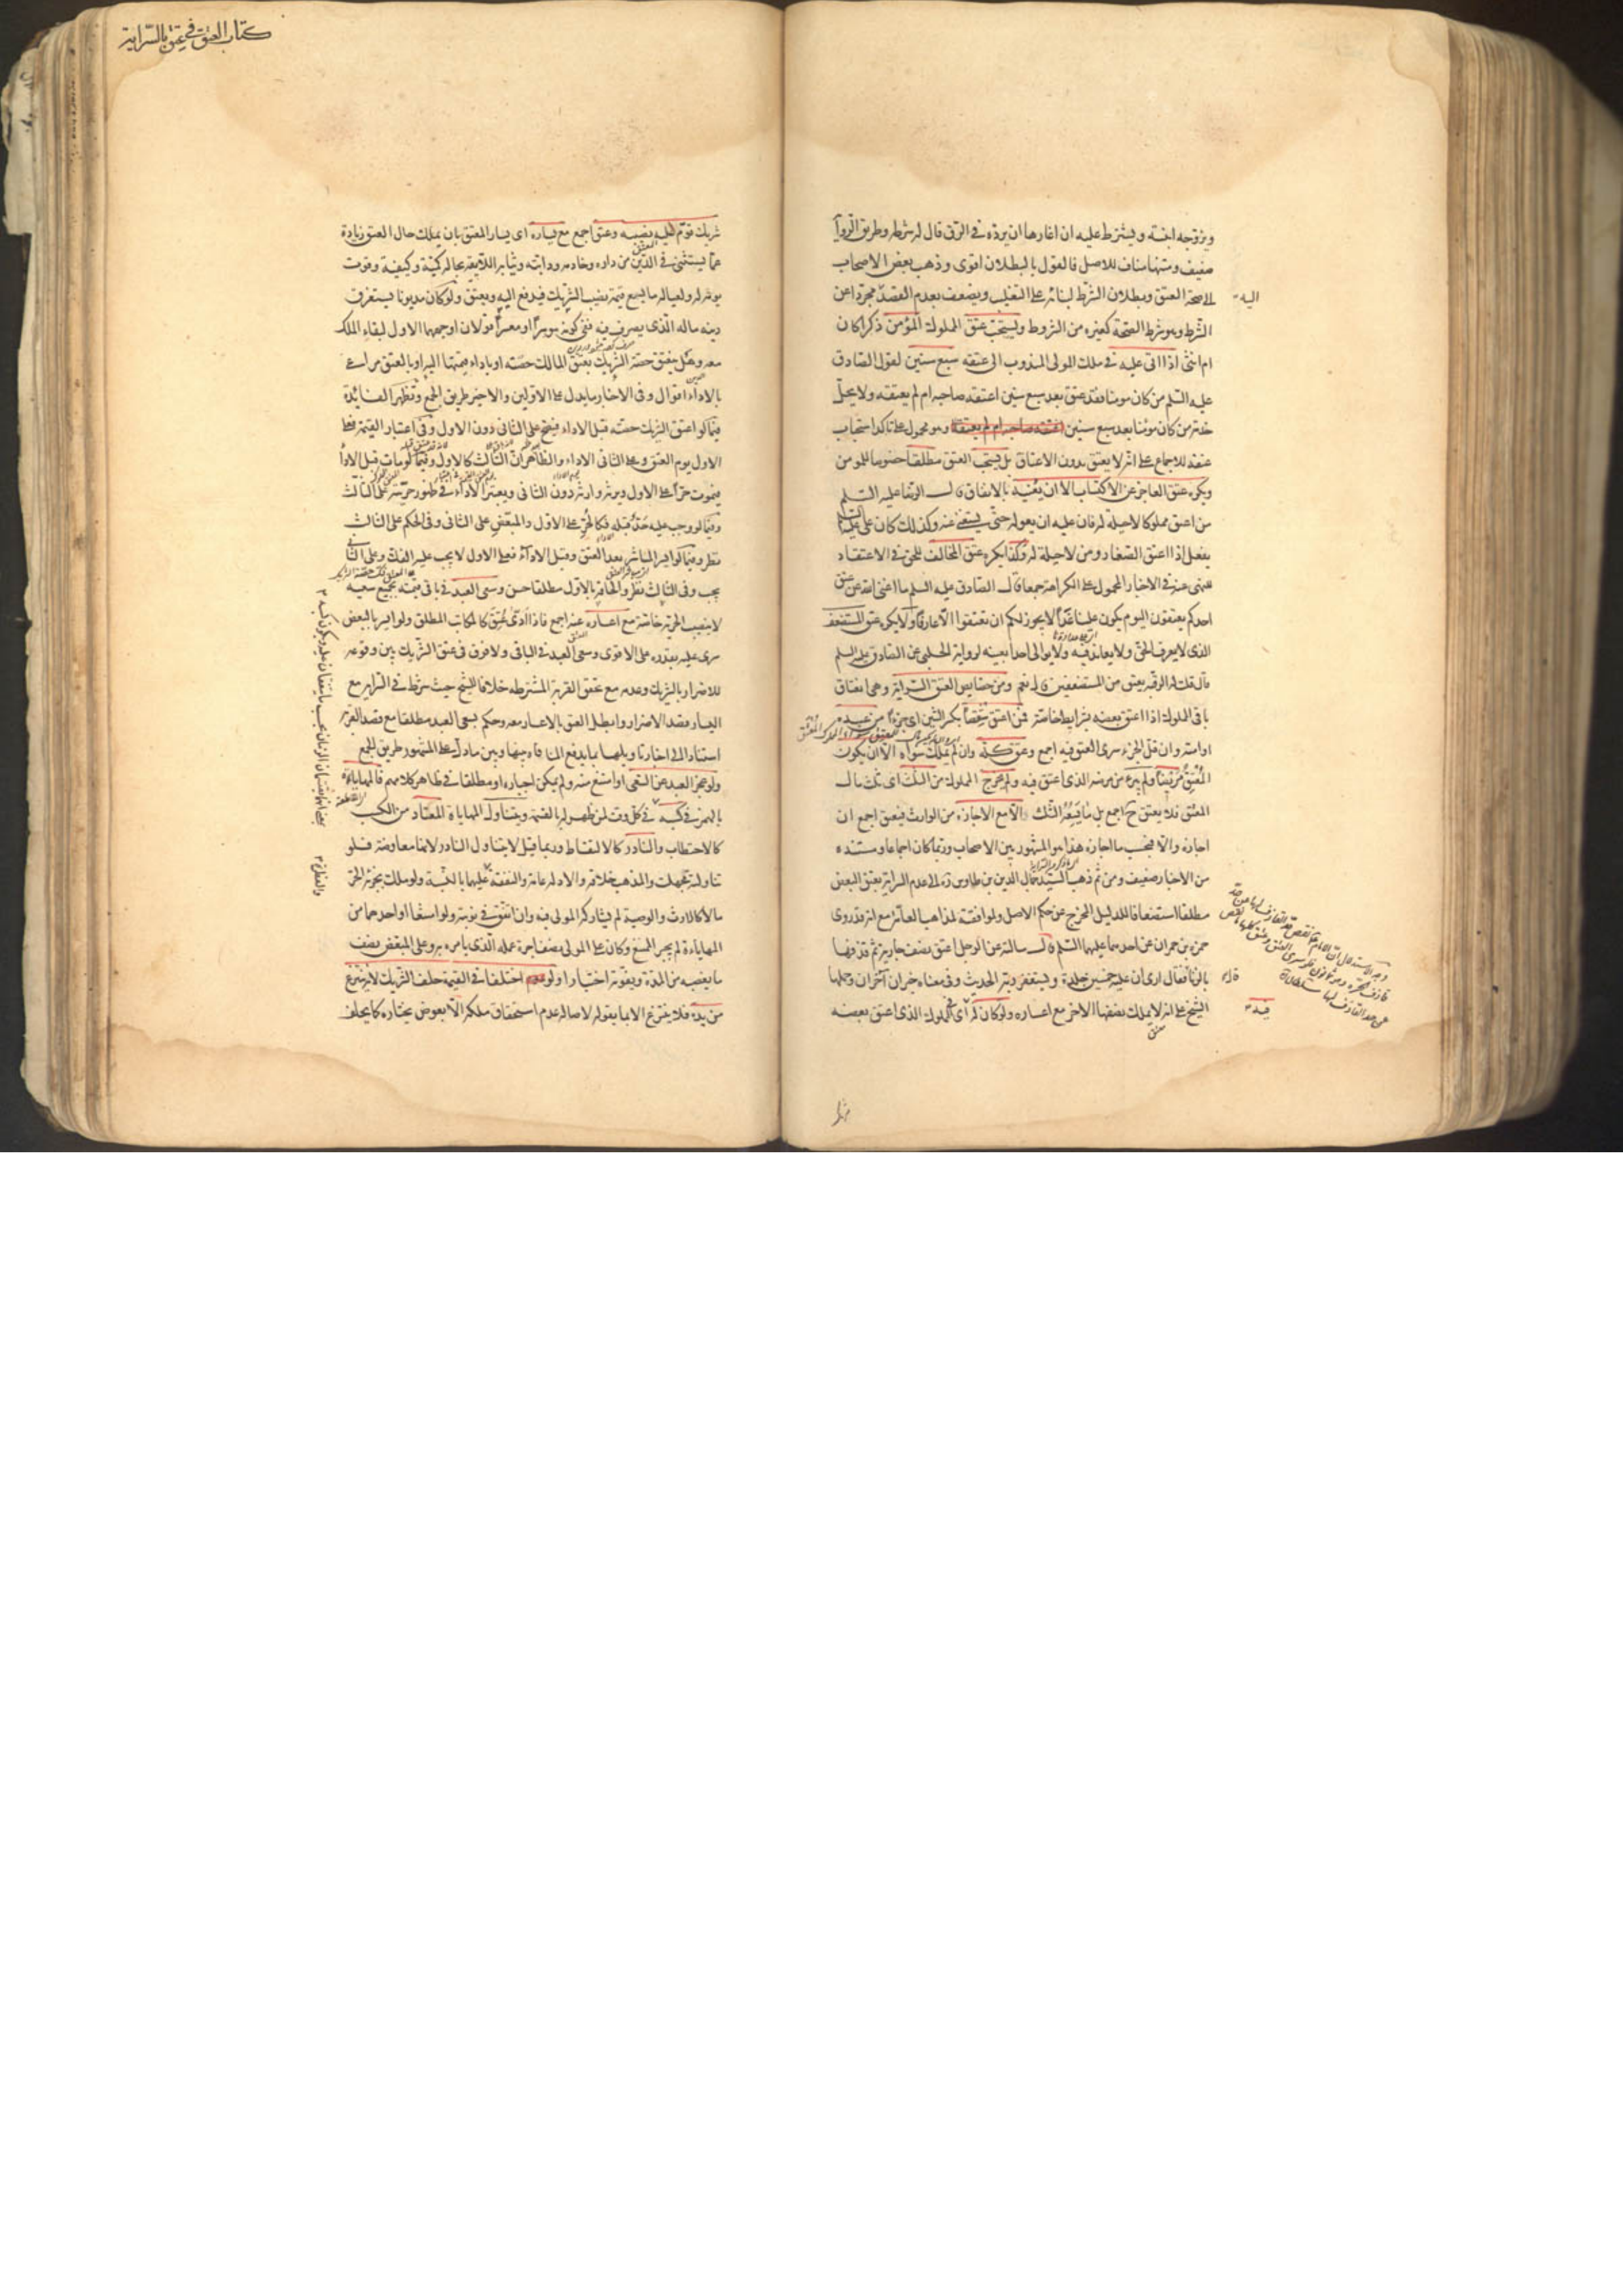 ويزوجه ابنته ويشترط عليه ان اغارها ان يرده في الرق قال له شرطه وطريق الروا
ضعيف ومتنها مناف للاصل فالقول بالبطلان اقوى وذهب بعض الاصحاب
الى صحة العتق وبطلان الشرط لبنائه على التغليب ويضعف بعدم القصد مجردا عن
الشرط وهو شرط الصحة كغيره من الشروط ويستحب عتق المملوك المؤمن ذكرا كان
ام انثى اذا اتى عليه في ملك المولى المندوب الى عتقه سبع سنين لقول الصادق
عليه السلم من كان مومنا فقد عتق بعد سبع سنين اعتقه صاحبه ام لم يعتقه ولا يحل
خدمة من كان مؤمنا بعد سبع سنين وهو محمول على تاكد استحباب
عتقه للاجماع على انه لا يعتق بدون الاعتاق بل يستحب العتق مطلقا خصوصا للمومن
ويكره عتق العاجز عن الاكتساب الا ان يعينه بالانفاق قال الرضا عليه السلم
من اعتق مملوكا لا حيلة له فان عليه ان يعوله حتى يستغنى عنه وكذلك كان علي عليه السلم
يفعل اذا اعتق الصغار ومن لا حيلة له وكذا يكره عتق المخالف للحق في الاعتقاد
للنهى عنه في الاخبار المحمول على الكراهة جمعا قال الصادق عليه السلم ما اغنى الله عن عتق
احدكم يعتقون اليوم يكون علينا غدا لا يجوز لكم ان تعتقوا الا عارفا ولا يكره عتق المستضعف
الذى لا يعرف الحق ولا يعاند فيه ولا يوالى احدا بعينه لرواية الحلبي عن الصادق عليه السلم
قال قلت له الرقبة يعتق من المستضعفين قال نعم ومن خصايص العتق السراية وهى انعتاق
باقى المملوك اذا اعتق بعضه بشرايط خاصة فمن اعتق شقصا بكسر الشين اى جزءا من عبده
او امته وان قل الجزء سرى العتق فيه اجمع وعتق كله وان لم يملك سواه الا ان يكون
المعتق مريضا ولم يبرء من مرضه الذى اعتق فيه ولم يخرج المملوك من الثلث اى ثلث مال
المعتق فلا يعتق ح اجمع بل ما يسعه الثلث الا مع الاجازة من الوارث فيعتق اجمع ان
اجازه والا فبحسب ما اجازه هذا هو المشهور بين الاصحاب وربما كان اجماعا ومستنده
من الاخبار ضعيف ومن ثم ذهب السيد جمال الدين بن طاوس ره الى عدم السراية بعتق البعض
مطلقا استضعافا للدليل المخرج عن حكم الاصل ولموافقته لمذاهب العامة مع انه قد روى
حمزة بن حمران عن احدهما عليهما السلم قال سالته عن الرجل اعتق نصف جاريته ثم قذفها
بالزنا فقال ارى ان عليه خمسين جلدة ويستغفر ربه الحديث وفى معناه خبران آخران وحملها
الشيخ على انه لا يملك نصفها الاخر مع اعساره ولو كان له اى للمملوك الذى اعتق بعضه
اليه
فيه
كتاب العتق في عتق بالسراية
شريك قوم عليه نصيبه وعتق اجمع مع يساره اى يسار المعتق بان يملك حال العتق زيادة
عما يستثنى في الدين من داره وخادمه ودابته وثيابه اللايقة بحاله كمية وكيفية وقوت
يوم له ولعياله ما يسع قيمة نصيب الشريك فيدفع اليه ويعتق ولو كان مديونا يستغرق
دينه ماله الذى يصرف فيه ففى كونه موسرا او معسرا قولان اوجههما الاول لبقاء الملك
معه وهل ينعتق حصة الشريك بعتق المالك حصته او باداء قيمتها اليه او بالعتق مراعى
بالاداء اقوال وفى الاخبار ما يدل على الاولين والاخير طريق الجمع وتظهر الفائدة
فيما لو اعتق الشريك حصته قبل الاداء فيصح على الثانى دون الاول وفى اعتبار القيمة فعلى
الاول يوم العتق وعلى الثانى الاداء والظاهر ان الثالث كالاول وفيما لو مات قبل الاداء
فيموت حرا على الاول ويرثه وارثه دون الثانى ويعتبر الاداء في ظهور حريته على الثالث
وفيما لو وجب عليه حد قبله فكالحر على الاول والمبعض على الثانى وفى الحكم على الثالث
نظر وفيما لو ايسر المباشر بعد العتق وقبل الاداء فعلى الاول لا يجب عليه الفك وعلى الثانى
يجب وفى الثالث نظر والحاقه بالاول مطلقا حسن وسعى العبد في باقى قيمته بجميع سعيه
لا بنصيب الحرية خاصة مع اعساره عنه اجمع فاذا ادى عتق كالمكاتب المطلق ولو ايسر بالبعض
سرى عليه بقدره على الاقوى وسعى العبد في الباقى ولا فرق في عتق الشريك بين وقوعه
للاضرار بالشريك وعدمه مع تحقق القربة المشترطة خلافا للشيخ حيث شرط في السراية مع
اليسار قصد الاضرار وابطل العتق بالاعسار معه وحكم بسعى العبد مطلقا مع قصد القربة
استنادا الى اخبار تاويلها بما يدفع المنافاة بينها وبين ما دل على المشهور طريق الجمع
ولو عجز العبد عن السعى او امتنع منه ولم يمكن اجباره او مطلقا في ظاهر كلامهم فالمهاياة
بالهمز في كسبه في كل وقت لمن ظهر له بالقسمة ويتناول المهاياة المعتاد من الكسب
كالاحتطاب والنادر كالالتقاط وربما قيل لا يتناول النادر لانها معاوضة فلو
تناولته تجهلت والمذهب خلافه والادلة عامة والنفقة عليهما بالنسبة ولو ملك بجزئه الحر
مالا كالارث والوصية لم يشاركه المولى فيه وان اتفق في نوبته ولو امتنعا او احدهما من
المهاياة لم يجبر الممتنع وكان على المولى نصف اجرة عمله الذى يامره به وعلى المبعض نصف
ما يغصبه من المدة ويفوته اختيارا ولو اختلفا في القيمة حلف الشريك لانه ينتزع
من يده فلا ينتزع الا بما يقوله لاصالة عدم استحقاق ملكه الا بعوض يختاره كما يحلف